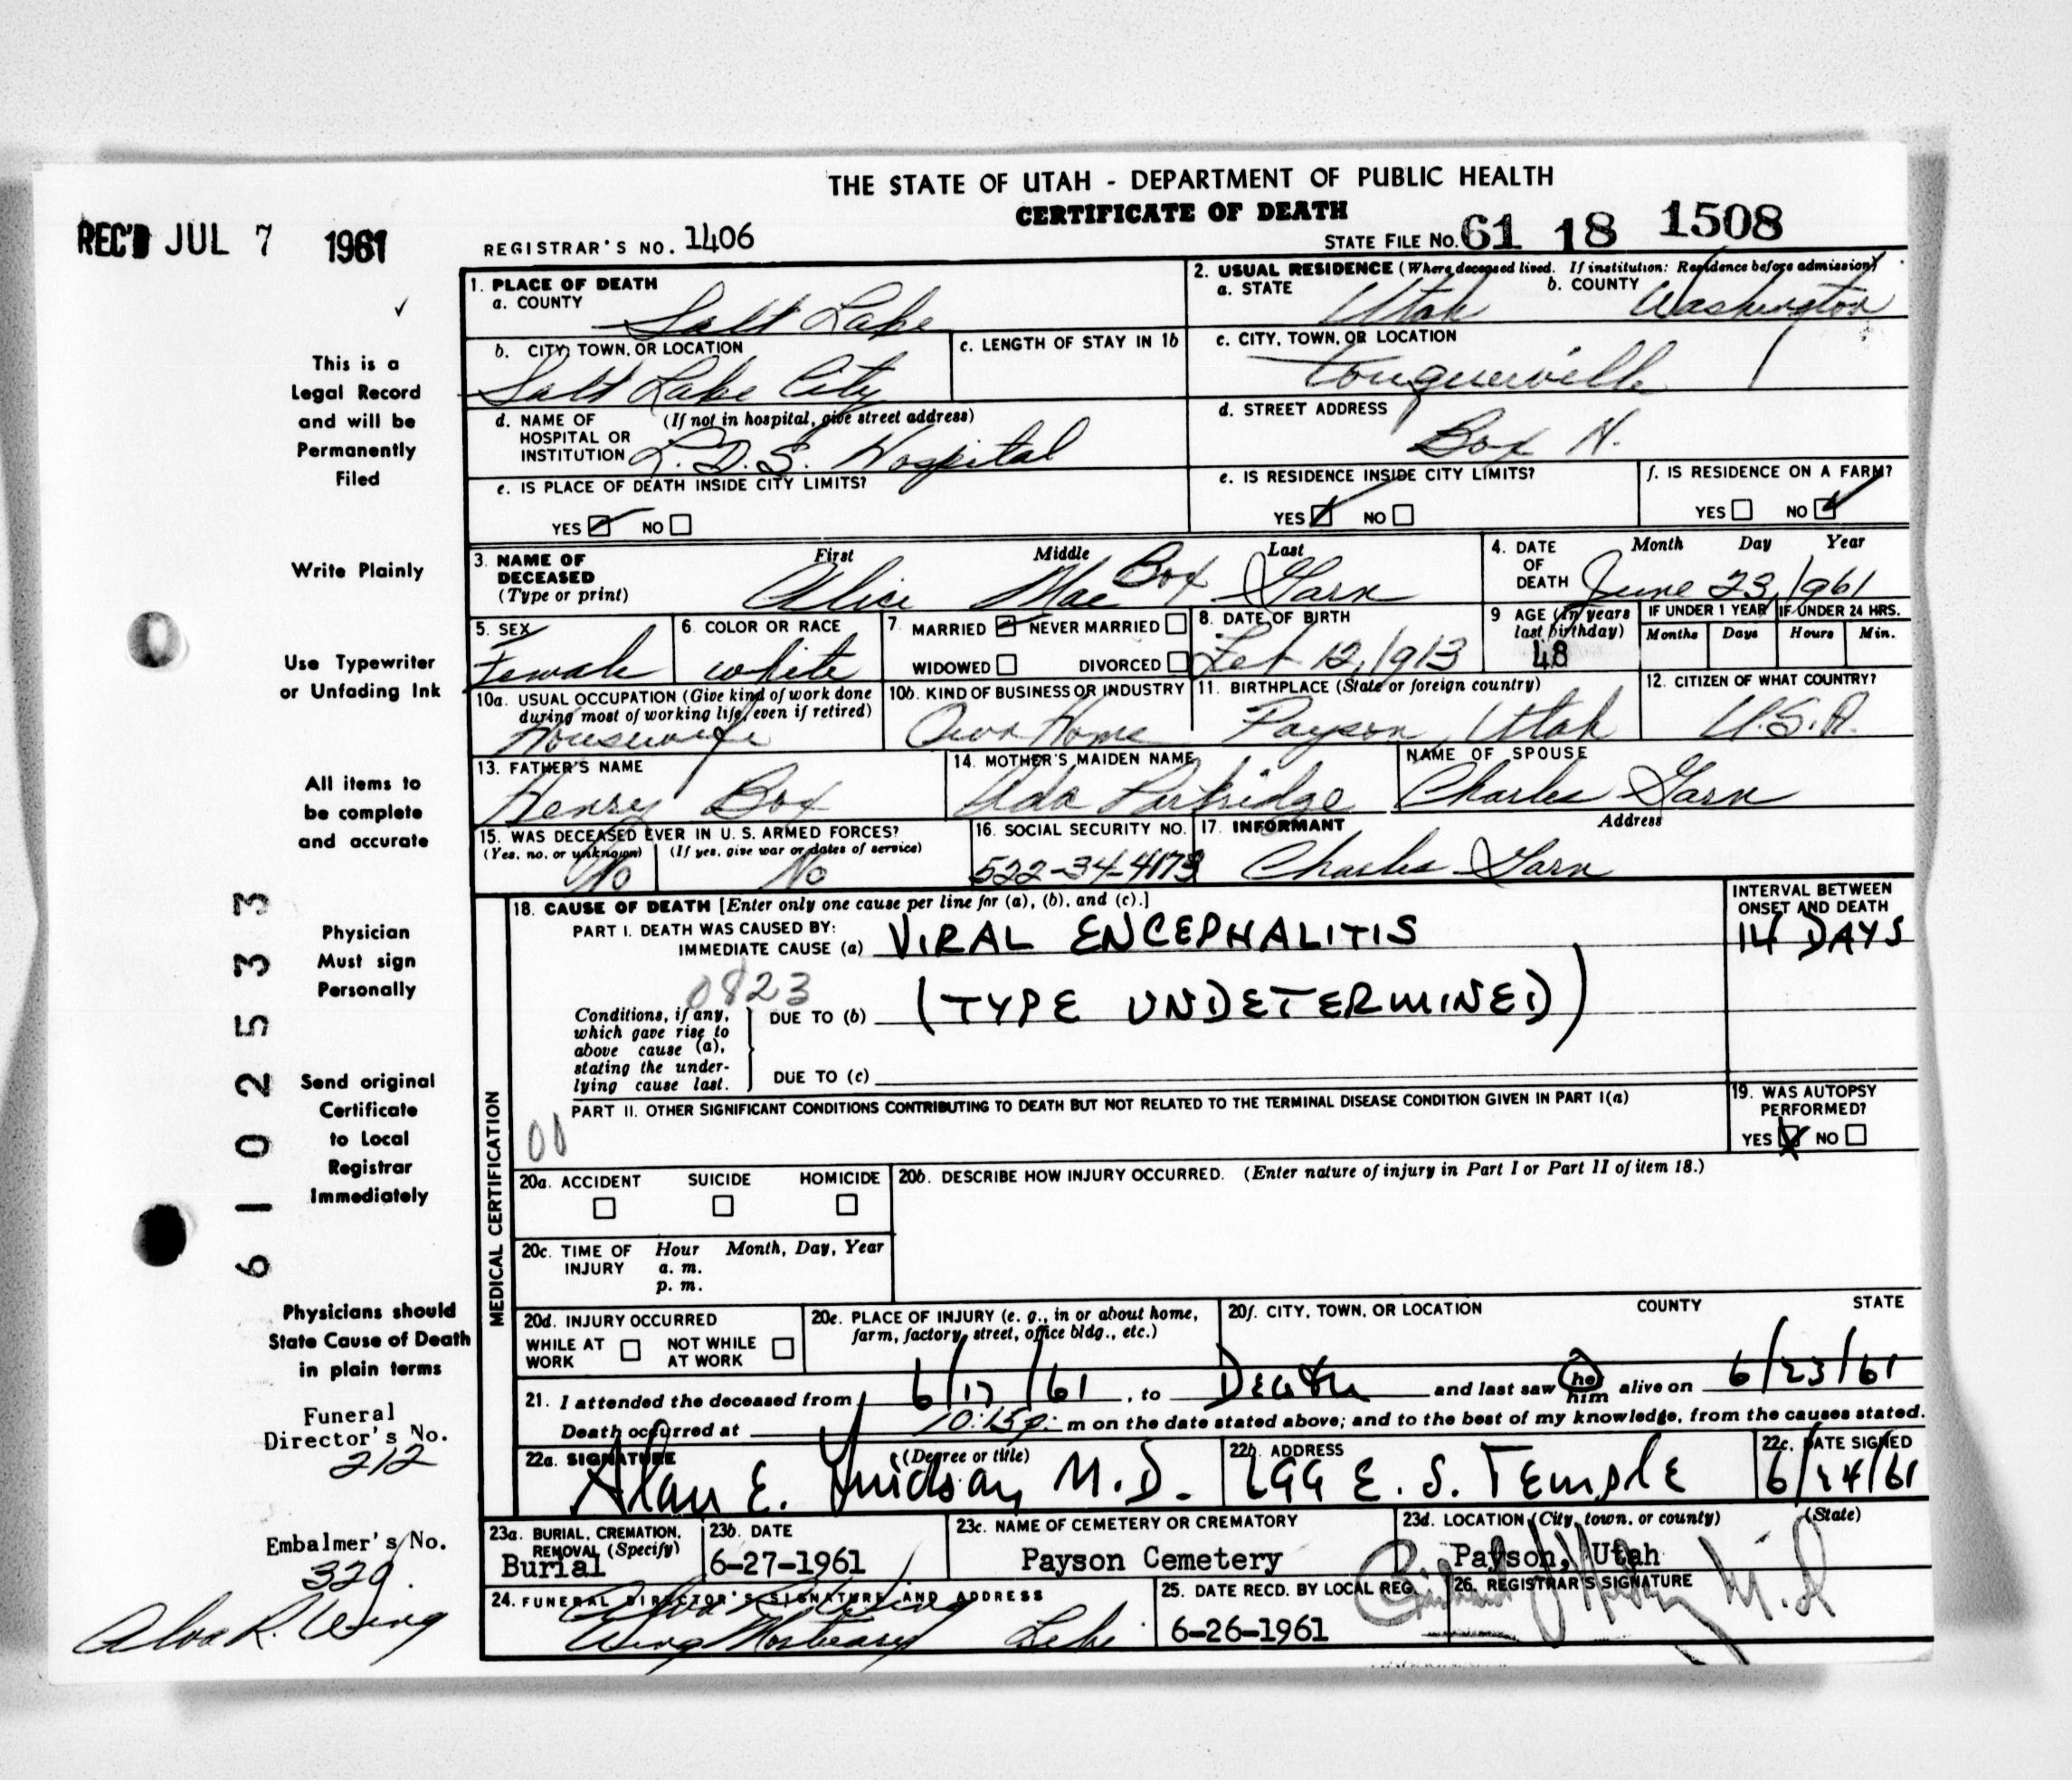 THE STATE OF UTAH - DEPARTMENT OF PUBLIC HEALTH
CERTIFICATE OF DEATH
REC'D JUL 7 1961
REGISTRAR'S NO. 1406
STATE FILE NO. 61 18 1508
This is a
Legal Record
and will be
Permanently
Filed
Write Plainly
Use Typewriter
or Unfading Ink
All items to
be complete
and accurate
Physician
Must sign
Personally
Send original
Certificate
to Local
Registrar
Immediately
Physicians should
State Cause of Death
in plain terms
Funeral
Director's No.
212
Embalmer's No.
329.
Alva R. Wing
6102533
1. PLACE OF DEATH
a. COUNTY Salt Lake
b. CITY, TOWN, OR LOCATION
Salt Lake City
c. LENGTH OF STAY IN 1b
d. NAME OF (If not in hospital, give street address)
HOSPITAL OR
INSTITUTION L.D.S. Hospital
e. IS PLACE OF DEATH INSIDE CITY LIMITS?
YES NO
2. USUAL RESIDENCE (Where deceased lived. If institution: Residence before admission)
a. STATE Utah b. COUNTY Washington
c. CITY, TOWN, OR LOCATION
Toquerville
d. STREET ADDRESS
Box N.
e. IS RESIDENCE INSIDE CITY LIMITS?
YES NO
f. IS RESIDENCE ON A FARM?
YES NO
3. NAME OF
DECEASED
(Type or print)
First Middle Last
Alice Mae Box Garn
4. DATE
OF
DEATH
Month Day Year
June 23, 1961
5. SEX
Female
6. COLOR OR RACE
white
7. MARRIED NEVER MARRIED
WIDOWED DIVORCED
8. DATE OF BIRTH
Feb 12, 1913
9 AGE (In years
last birthday)
48
IF UNDER 1 YEAR IF UNDER 24 HRS.
Months Days Hours Min.
10a. USUAL OCCUPATION (Give kind of work done
during most of working life, even if retired)
Housewife
10b. KIND OF BUSINESS OR INDUSTRY
Own Home
11. BIRTHPLACE (State or foreign country)
Payson, Utah
12. CITIZEN OF WHAT COUNTRY?
U.S.A.
13. FATHER'S NAME
Henry Box
14. MOTHER'S MAIDEN NAME
Ada Partridge
NAME OF SPOUSE
Charles Garn
15. WAS DECEASED EVER IN U. S. ARMED FORCES?
(Yes, no, or unknown) (If yes, give war or dates of service)
No No
16. SOCIAL SECURITY NO.
522-34-4173
17. INFORMANT Address
Charles Garn
MEDICAL CERTIFICATION
18. CAUSE OF DEATH [Enter only one cause per line for (a), (b), and (c).]
PART I. DEATH WAS CAUSED BY:
IMMEDIATE CAUSE (a) VIRAL ENCEPHALITIS
0823
Conditions, if any,
which gave rise to
above cause (a),
stating the under-
lying cause last.
DUE TO (b) (TYPE UNDETERMINED)
DUE TO (c)
INTERVAL BETWEEN
ONSET AND DEATH
14 DAYS
PART II. OTHER SIGNIFICANT CONDITIONS CONTRIBUTING TO DEATH BUT NOT RELATED TO THE TERMINAL DISEASE CONDITION GIVEN IN PART I(a)
00
19. WAS AUTOPSY
PERFORMED?
YES NO
20a. ACCIDENT SUICIDE HOMICIDE
20b. DESCRIBE HOW INJURY OCCURRED. (Enter nature of injury in Part I or Part II of item 18.)
20c. TIME OF Hour Month, Day, Year
INJURY a. m.
p. m.
20d. INJURY OCCURRED
WHILE AT NOT WHILE
WORK AT WORK
20e. PLACE OF INJURY (e. g., in or about home,
farm, factory, street, office bldg., etc.)
20f. CITY, TOWN, OR LOCATION COUNTY STATE
21. I attended the deceased from 6/17/61, to Death and last saw he him alive on 6/23/61
Death occurred at 10:15p. m on the date stated above; and to the best of my knowledge, from the causes stated.
22a. SIGNATURE (Degree or title)
Alan E. Lindsay M.D.
22b. ADDRESS
E. S. TEMPLE
22c. DATE SIGNED
6/24/61
23a. BURIAL, CREMATION,
REMOVAL (Specify)
Burial
23b. DATE
6-27-1961
23c. NAME OF CEMETERY OR CREMATORY
Payson Cemetery
23d. LOCATION (City, town, or county) (State)
Payson, Utah
24. FUNERAL DIRECTOR'S SIGNATURE AND ADDRESS
Alva R. Wing
Wing Mortuary Lehi
25. DATE RECD. BY LOCAL REG.
6-26-1961
26. REGISTRAR'S SIGNATURE
M.D